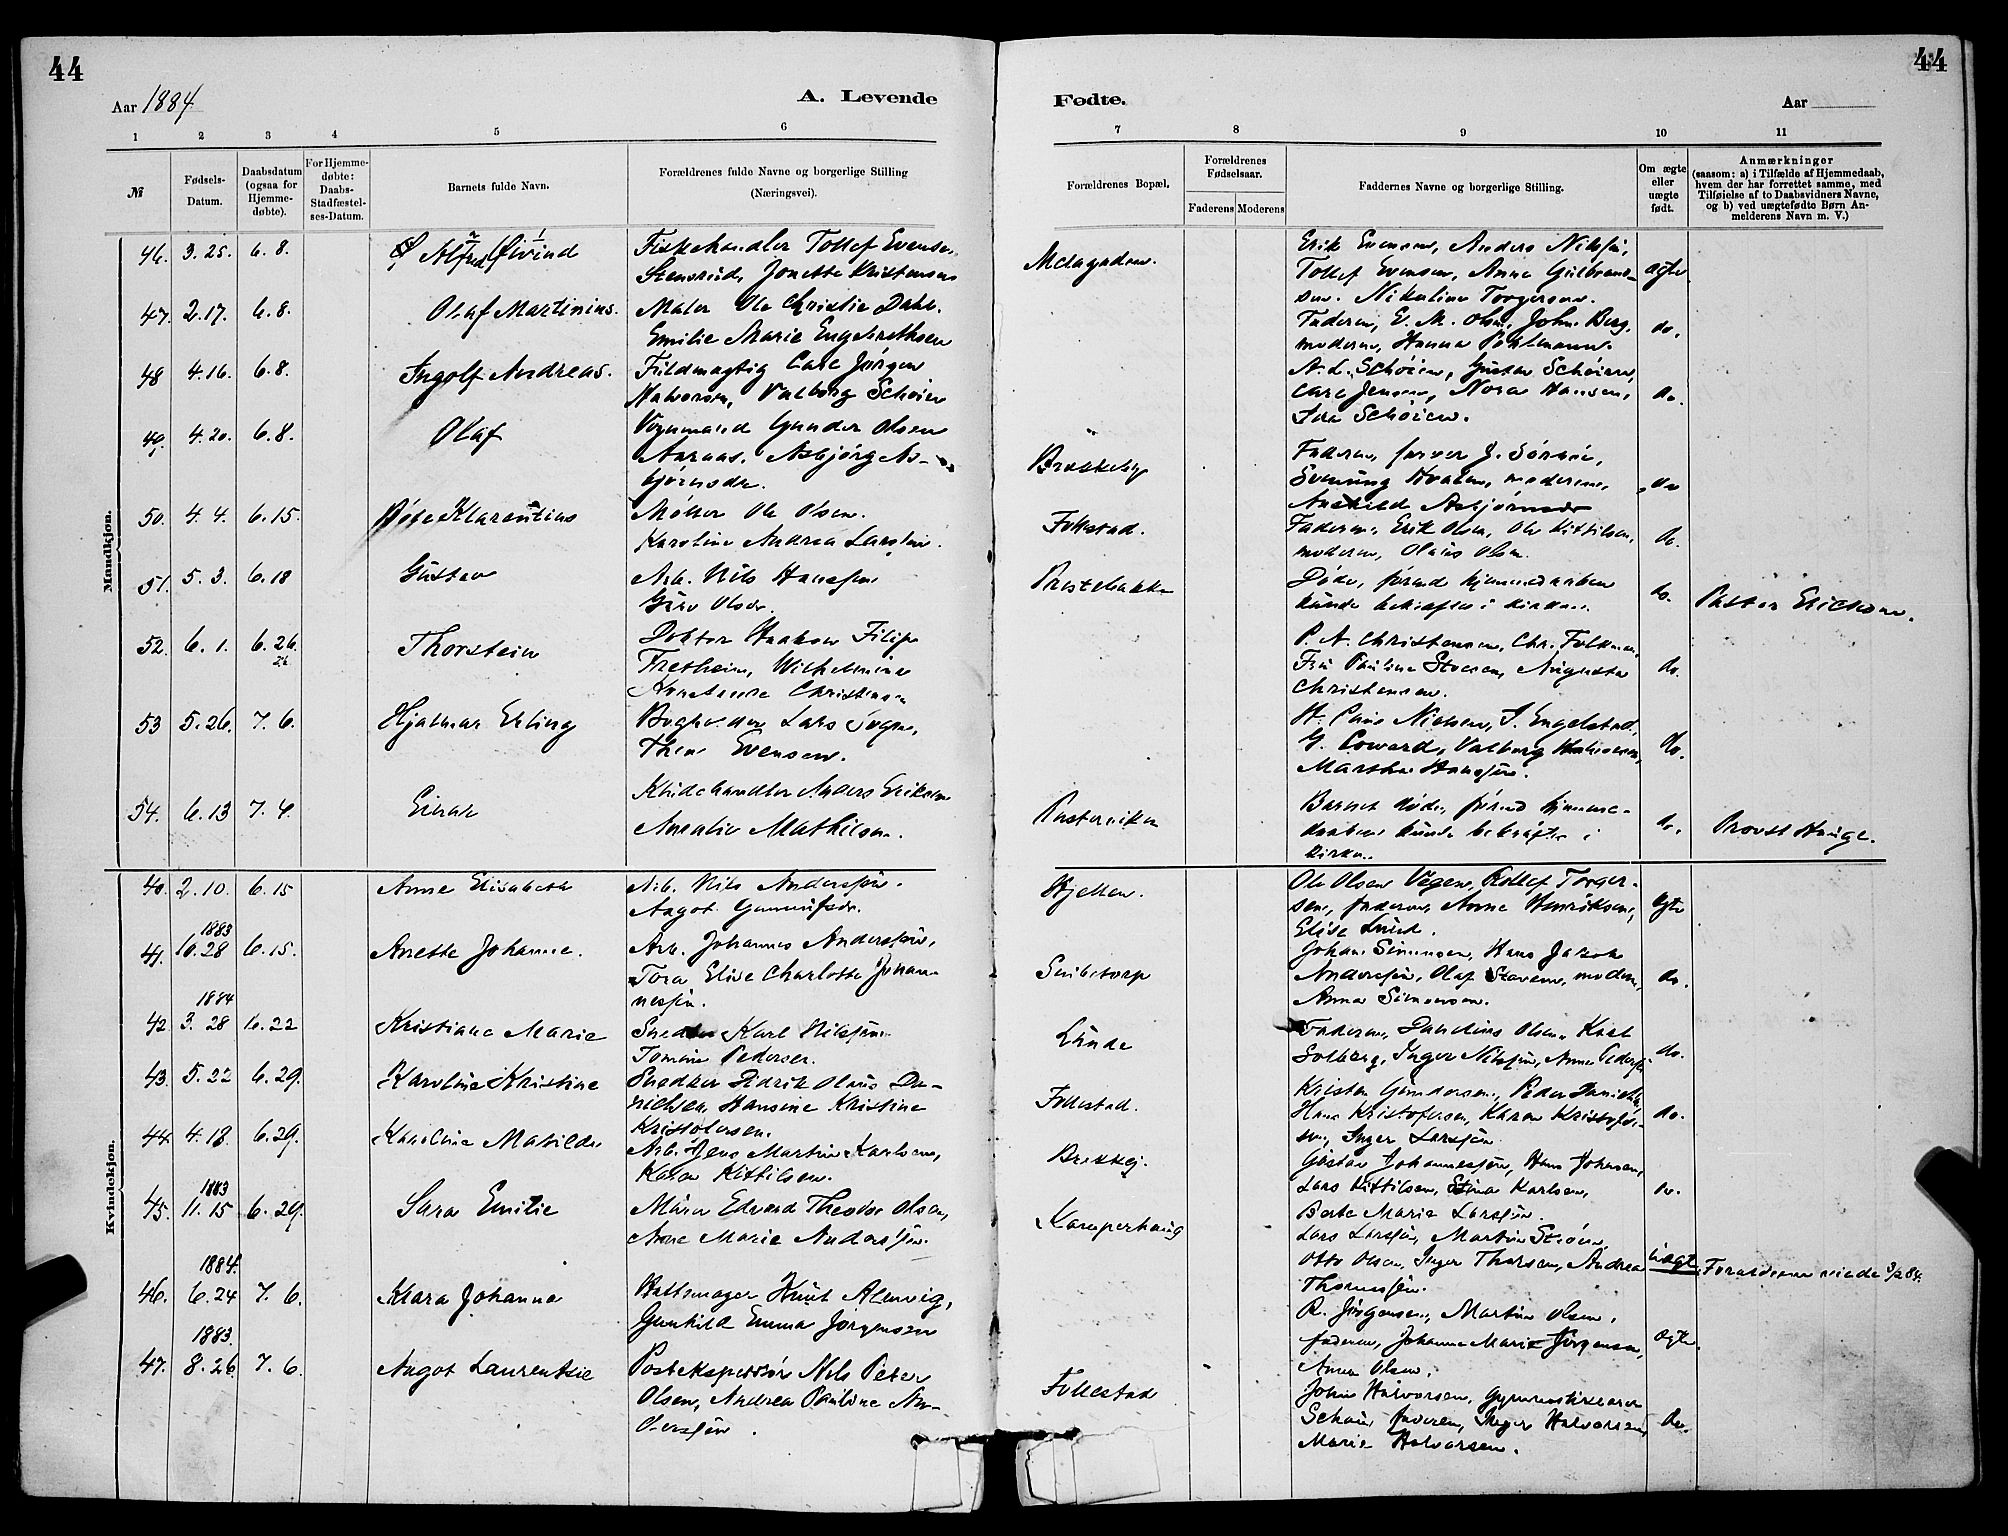 44
44
Aar 1884
A. Levende
Fødte.
Aar
1 2 3 4 5 6 7 8 9 10 11
№
Fødsels-Datum.
Daabsdatum (ogsaa for Hjemme-døbte).
For Hjemme-døbte: Daabs-Stadfæstel-ses-Datum.
Barnets fulde Navn.
Forældrenes fulde Navne og borgerlige Stilling (Næringsvei).
Forældrenes Bopæl.
Forældrenes Fødselsaar.
Faderens Moderens
Faddernes Navne og borgerlige Stilling.
Om ægte eller uægte født.
Anmærkninger (saasom: a) i Tilfælde af Hjemmedaab, hvem der har forrettet samme, med Tilføielse af to Daabsvidners Navne, og b) ved uægtefødte Børn An-melderens Navn m. V.)
Mandkjøn.
46. 3.25. 6.8. Alfred Øivind Fiskehandler Tollef Evensen Erik Evensen, Anders Nilsen,
Stensrud, Jonette Kristensen Tollef Evensen, Anne Gulbrand- ægte
sen. Nikoline Torgersen.
47. 2.17. 6.8. Olaf Martinius. Maler Ole Christie Dahl. Faderen, E. M. Olsen, John Berg, do.
Emilie Marie Engebrethsen moderen, Hanna Pohlmann.
48 4.16. 6.8. Ingolf Andreas. Fuldmægtig Carl Jørgen A. L. Schøien, Gustav Schøien,
Halvorsen, Valborg Schøien Carl Jensen, Nora Hansen, do.
Schøien.
49. 4.20. 6.8. Olaf Vognmand Gunder Olsen Faderen, farver J. Sørsen,
Aaraas. Asbjørg As- Brekkeby Hvalen, moderen, do
bjørnsdr. Asbjørnsdr
50. 4.4. 6.15. Klarentius Møller Ole Olsen. Follestad. Faderen, Erik Olsen, Ole Kittilsen, do.
Karoline Andrea Larsen. moderen, Olaus Olsen.
51. 5.3. 6.18 Gustav Arb. Nils Hansen Prestebakke Døde, førend hjemmedaaben do. Pastor Erichsen.
Olsdr. kunde bekræftes i kirken.
52. 6.1. 6.26. Thorstein Doktor Haakon Filip P. A. Christensen, Chr.
26. Fretheim, Wilhelmine Fru Pauline Stoesen, Augusta do.
Christensen Christensen.
53 5.26. 7.6. Hjalmar Erling Lars H. Nielsen, J. Engelstad,
Evensen. G. Coward, Valborg do.
Martha Hansen.
54. 6.13 7.4. Einar Anders Eriksen Barnet døde, førend hjemme-
Amalie Mathilsen. daaben kunde bekræftes i do. Provst Hauge.
kirken.
Kvindekjøn.
40. 2.10. 6.15 Anne Elisabeth Arb. Nils Andersen. Kjellen. Ole Olsen Vegen, Rollef Torger-
Aagot sen, faderen, Anne Henriksen, ægte
Elise Lund.
1883
41. 10.28 6.15. Anette Johanne. Arb. Johannes Andersen, Johan Simonsen, Hans Jakob
Tora Elise Charlotte Johan- Andersen, Olaf moderen, do.
nesen. Anna Simonsen.
1884
42 3.28 6.22 Kristiane Marie Snedker Karl Nilsen Lunde Faderen, Olsen, Karl
Tomine Pedersen. Solberg, Inger Nilsen, Anne Pedersen do.
43. 5.22 6.29. Karoline Kristine Snedker Didrik Olaus Da- Follestad. Kristen Gundersen, Peder Danielsen,
nielsen, Hansine Kristine Hans Kristofersen, Karen Kristofer- do.
Kristofersen. sen, Inger Larsen.
44. 4.18. 6.29. Karoline Matilde Arb. Jens Martin Karlsen, Gustav Johannesen, Hans Johansen,
Karen Kittilsen. Lars Kittilsen, Stina Karlsen, do.
Berte Marie Larsen.
1883
45. 11.15 6.29. Sara Emilie Murer Edvard Theodor Olsen, Kamperhaug Lars Larsen, Martin Strøm,
Anne Marie Andersen. Otto Olsen, Inger Thorsen, Andrea uægte. Forældrene viede 3/2 84.
Thomesen.
1884.
46. 6.24 7.6. Klara Johanne Knut Almvig, R. Jørgensen, Martin Olsen,
Gunhild Emma Jørgensen faderen, Johanne Marie Jørgensen, ægte.
Anna Olsen.
1883.
47. 8.26 7.6. Aagot Laurentze Postekspeditør Nils Peter Follestad John Halvorsen, Gymnastiklærer
Olsen, Andrea Pauline An- faderen, Inger Halvorsen, do.
dersen. Marie Halvorsen.